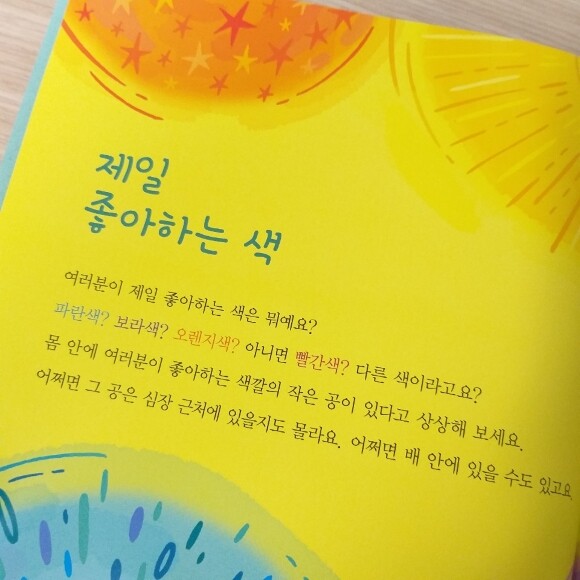 제일
좋아하는 색
여러분이 제일 좋아하는 색은 뭐예요?
파란색? 보라색? 오렌지색? 아니면 빨간색? 다른 색이라고요?
몸 안에 여러분이 좋아하는 색깔의 작은 공이 있다고 상상해 보세요.
어쩌면 그 공은 심장 근처에 있을지도 몰라요. 어쩌면 배 안에 있을 수도 있고요.